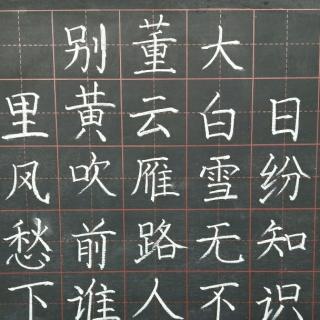 别董大
里黄云白日
风吹雁雪纷
愁前路无知
下谁人不识